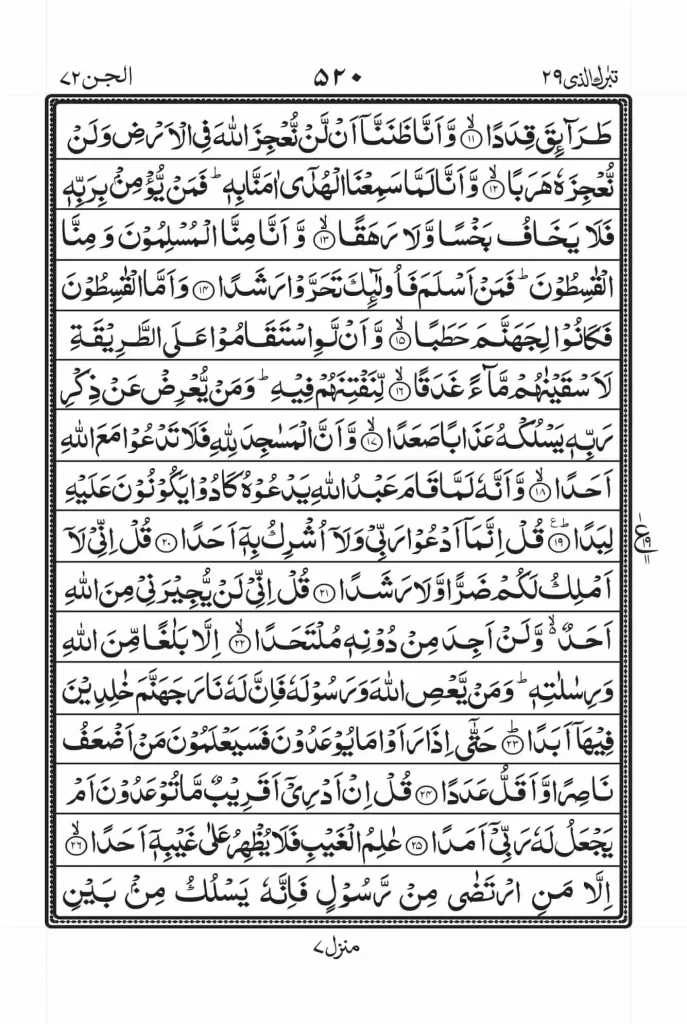 تبٰرك الذی ٢٩
۵۲۰
الجن ٧٢
طَرَآئِقَ قِدَدًا ۙ﴿۱۱﴾ وَّاَنَّا ظَنَنَّاۤ اَنْ لَّنْ نُّعْجِزَ اللّٰهَ فِی الْاَرْضِ وَلَنْ
نُّعْجِزَهٗ هَرَبًا ۙ﴿۱۲﴾ وَّاَنَّا لَمَّا سَمِعْنَا الْهُدٰۤی اٰمَنَّا بِهٖ ؕ فَمَنْ یُّؤْمِنْۢ بِرَبِّهٖ
فَلَا یَخَافُ بَخْسًا وَّلَا رَهَقًا ۙ﴿۱۳﴾ وَّاَنَّا مِنَّا الْمُسْلِمُوْنَ وَمِنَّا
الْقٰسِطُوْنَ ؕ فَمَنْ اَسْلَمَ فَاُولٰٓئِكَ تَحَرَّوْا رَشَدًا ﴿۱۴﴾ وَاَمَّا الْقٰسِطُوْنَ
فَكَانُوْا لِجَهَنَّمَ حَطَبًا ۙ﴿۱۵﴾ وَّاَنْ لَّوِ اسْتَقَامُوْا عَلَی الطَّرِیْقَةِ
لَاَسْقَیْنٰهُمْ مَّآءً غَدَقًا ۙ﴿۱۶﴾ لِّنَفْتِنَهُمْ فِیْهِ ؕ وَمَنْ یُّعْرِضْ عَنْ ذِكْرِ
رَبِّهٖ یَسْلُكْهُ عَذَابًا صَعَدًا ۙ﴿۱۷﴾ وَّاَنَّ الْمَسٰجِدَ لِلّٰهِ فَلَا تَدْعُوْا مَعَ اللّٰهِ
اَحَدًا ۙ﴿۱۸﴾ وَّاَنَّهٗ لَمَّا قَامَ عَبْدُ اللّٰهِ یَدْعُوْهُ كَادُوْا یَكُوْنُوْنَ عَلَیْهِ
لِبَدًا ؕ﴿۱۹﴾ قُلْ اِنَّمَاۤ اَدْعُوْا رَبِّیْ وَلَاۤ اُشْرِكُ بِهٖۤ اَحَدًا ﴿۲۰﴾ قُلْ اِنِّیْ لَاۤ
ع ۱۹ ۱۱
اَمْلِكُ لَكُمْ ضَرًّا وَّلَا رَشَدًا ﴿۲۱﴾ قُلْ اِنِّیْ لَنْ یُّجِیْرَنِیْ مِنَ اللّٰهِ
اَحَدٌ ۬ۙ وَّلَنْ اَجِدَ مِنْ دُوْنِهٖ مُلْتَحَدًا ۙ﴿۲۲﴾ اِلَّا بَلٰغًا مِّنَ اللّٰهِ
وَرِسٰلٰتِهٖ ؕ وَمَنْ یَّعْصِ اللّٰهَ وَرَسُوْلَهٗ فَاِنَّ لَهٗ نَارَ جَهَنَّمَ خٰلِدِیْنَ
فِیْهَاۤ اَبَدًا ؕ﴿۲۳﴾ حَتّٰۤی اِذَا رَاَوْا مَا یُوْعَدُوْنَ فَسَیَعْلَمُوْنَ مَنْ اَضْعَفُ
نَاصِرًا وَّاَقَلُّ عَدَدًا ﴿۲۴﴾ قُلْ اِنْ اَدْرِیْۤ اَقَرِیْبٌ مَّا تُوْعَدُوْنَ اَمْ
یَجْعَلُ لَهٗ رَبِّیْۤ اَمَدًا ﴿۲۵﴾ عٰلِمُ الْغَیْبِ فَلَا یُظْهِرُ عَلٰی غَیْبِهٖۤ اَحَدًا ۙ﴿۲۶﴾
اِلَّا مَنِ ارْتَضٰی مِنْ رَّسُوْلٍ فَاِنَّهٗ یَسْلُكُ مِنْۢ بَیْنِ
منزل ٧